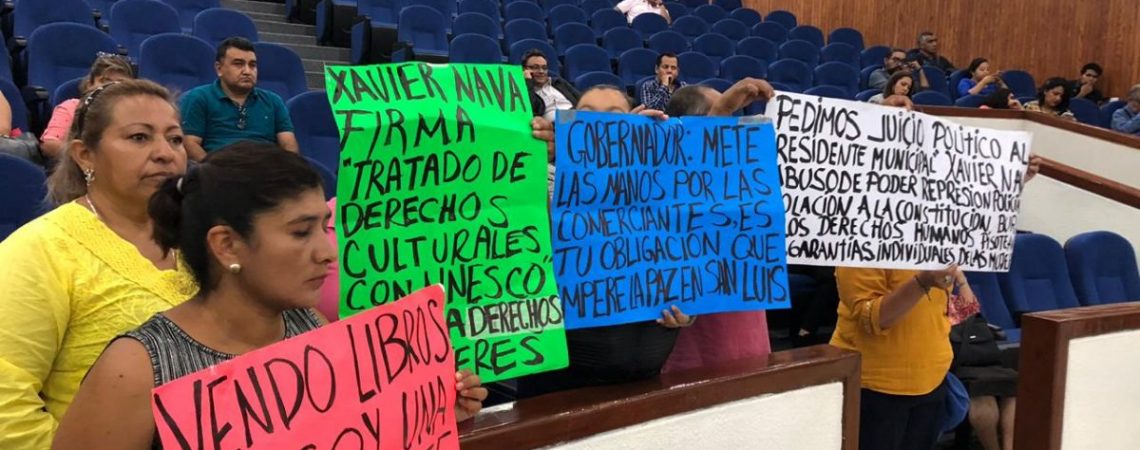 XAVIER NAVA
FIRMA
"TRATADO DE
DERECHOS
CULTURALES
CON UNESCO"
A DERECHOS
ERES
GOBERNADOR: METE
LAS MANOS POR LAS
COMERCIANTES, ES
TU OBLIGACIÓN QUE
IMPERE LA PAZ EN SAN LUIS
PEDIMOS JUICIO POLITICO AL
RESIDENTE MUNICIPAL" XAVIER NA
ABUSO DE PODER REPRESIÓN
OLACIÓN A LA CONSTITUCIÓN
LOS DERECHOS HUMANOS
GARANTÍAS INDIVIDUALES DE LAS
VENDO LIBROS
SOY UNA